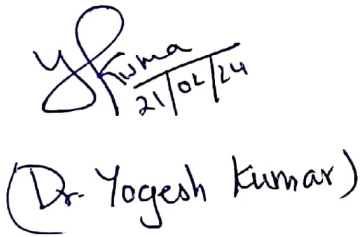 YKuma
21/02/24
(Dr. Yogesh Kumar)